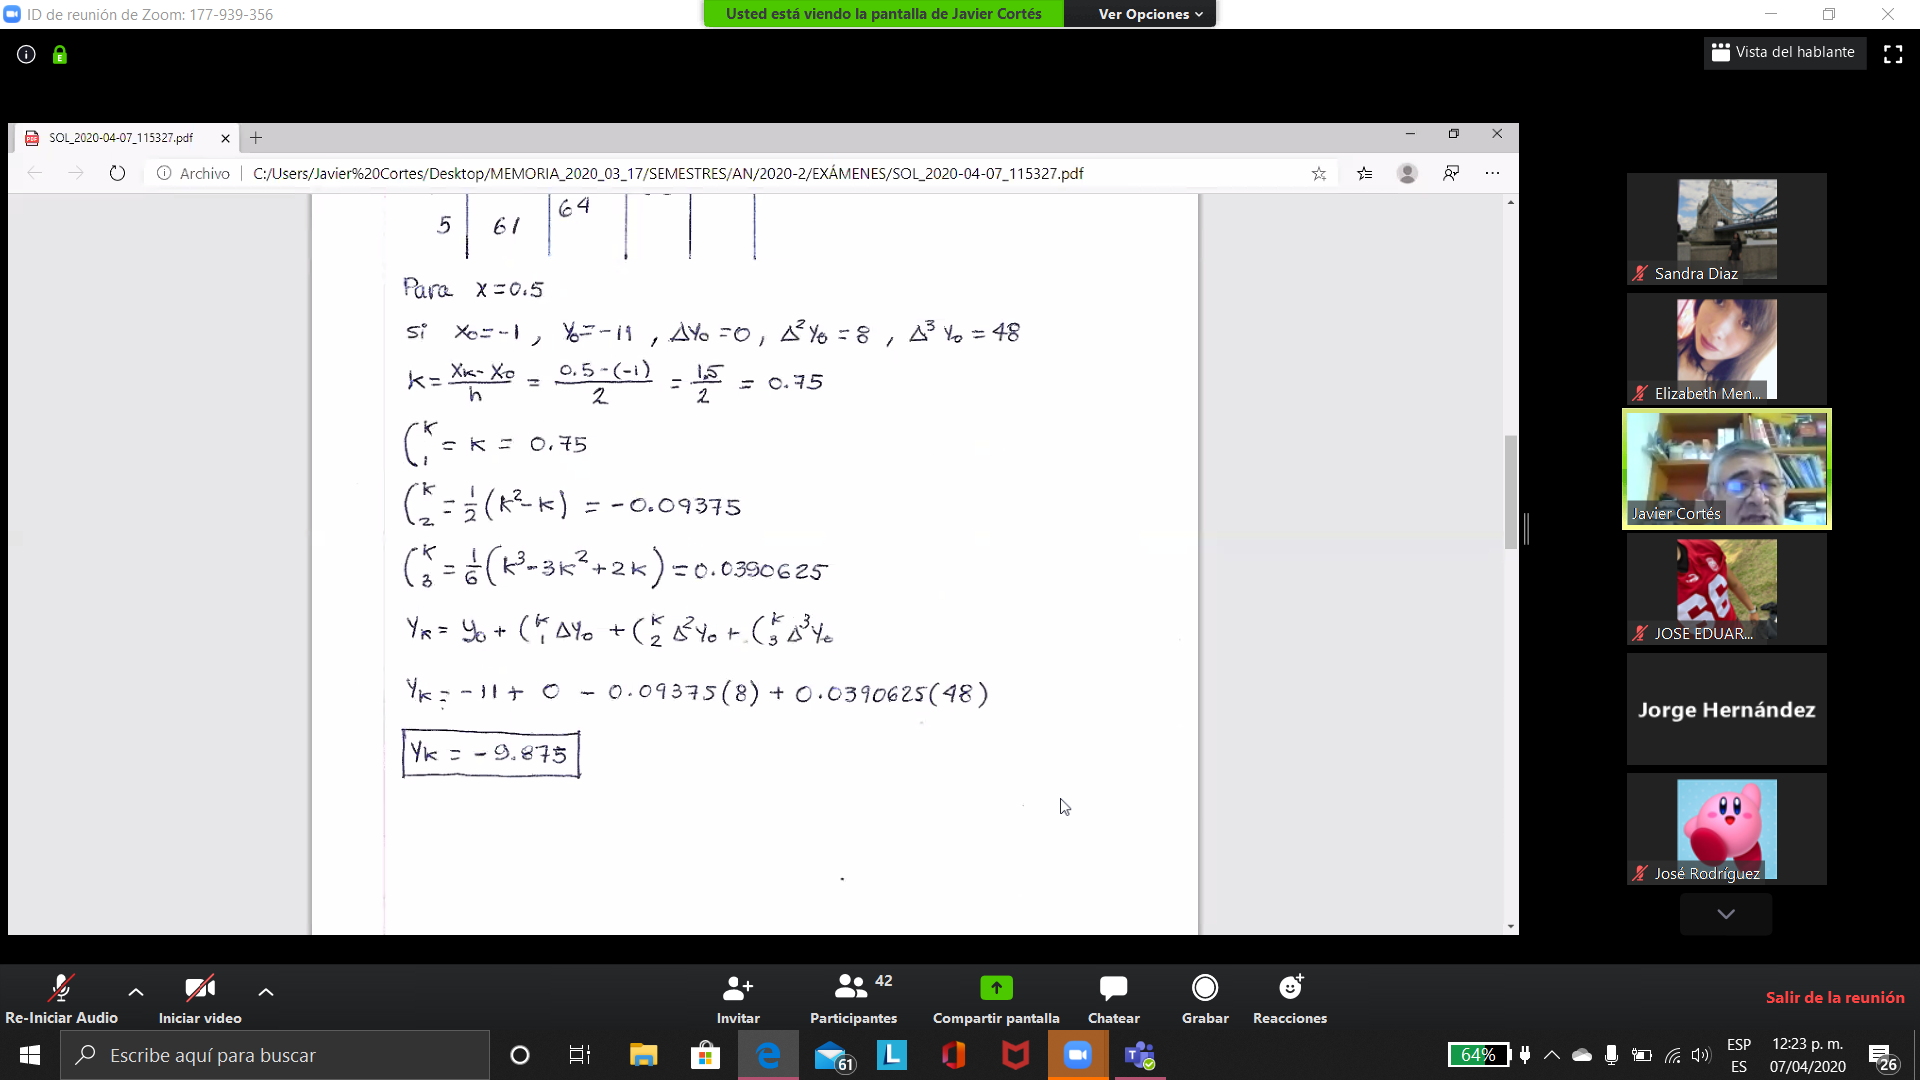 ID de reunión de Zoom: 177-939-356
Usted está viendo la pantalla de Javier Cortés
Ver Opciones
Vista del hablante
SOL_2020-04-07_115327.pdf
Archivo
C:/Users/Javier%20Cortes/Desktop/MEMORIA_2020_03_17/SEMESTRES/AN/2020-2/EXÁMENES/SOL_2020-04-07_115327.pdf
64
5 61
Para x=0.5
si x₀=-1, y₀=-11, Δy₀=0, Δ²y₀=8, Δ³y₀=48
k = (xk - x₀)/h = (0.5-(-1))/2 = 1.5/2 = 0.75
(k 1 = k = 0.75
(k 2 = 1/2 (k²-k) = -0.09375
(k 3 = 1/6 (k³-3k²+2k) = 0.0390625
yk = y₀ + (k 1 Δy₀ + (k 2 Δ²y₀ + (k 3 Δ³y₀
yk = -11 + 0 - 0.09375(8) + 0.0390625(48)
yk = -9.875
Sandra Diaz
Elizabeth Men...
Javier Cortés
66
JOSE EDUAR...
Jorge Hernández
José Rodríguez
Re-Iniciar Audio
Iniciar video
Invitar
42
Participantes
Compartir pantalla
Chatear
Grabar
Reacciones
Salir de la reunión
Escribe aquí para buscar
61
64%
ESP
ES
12:23 p. m.
07/04/2020
26